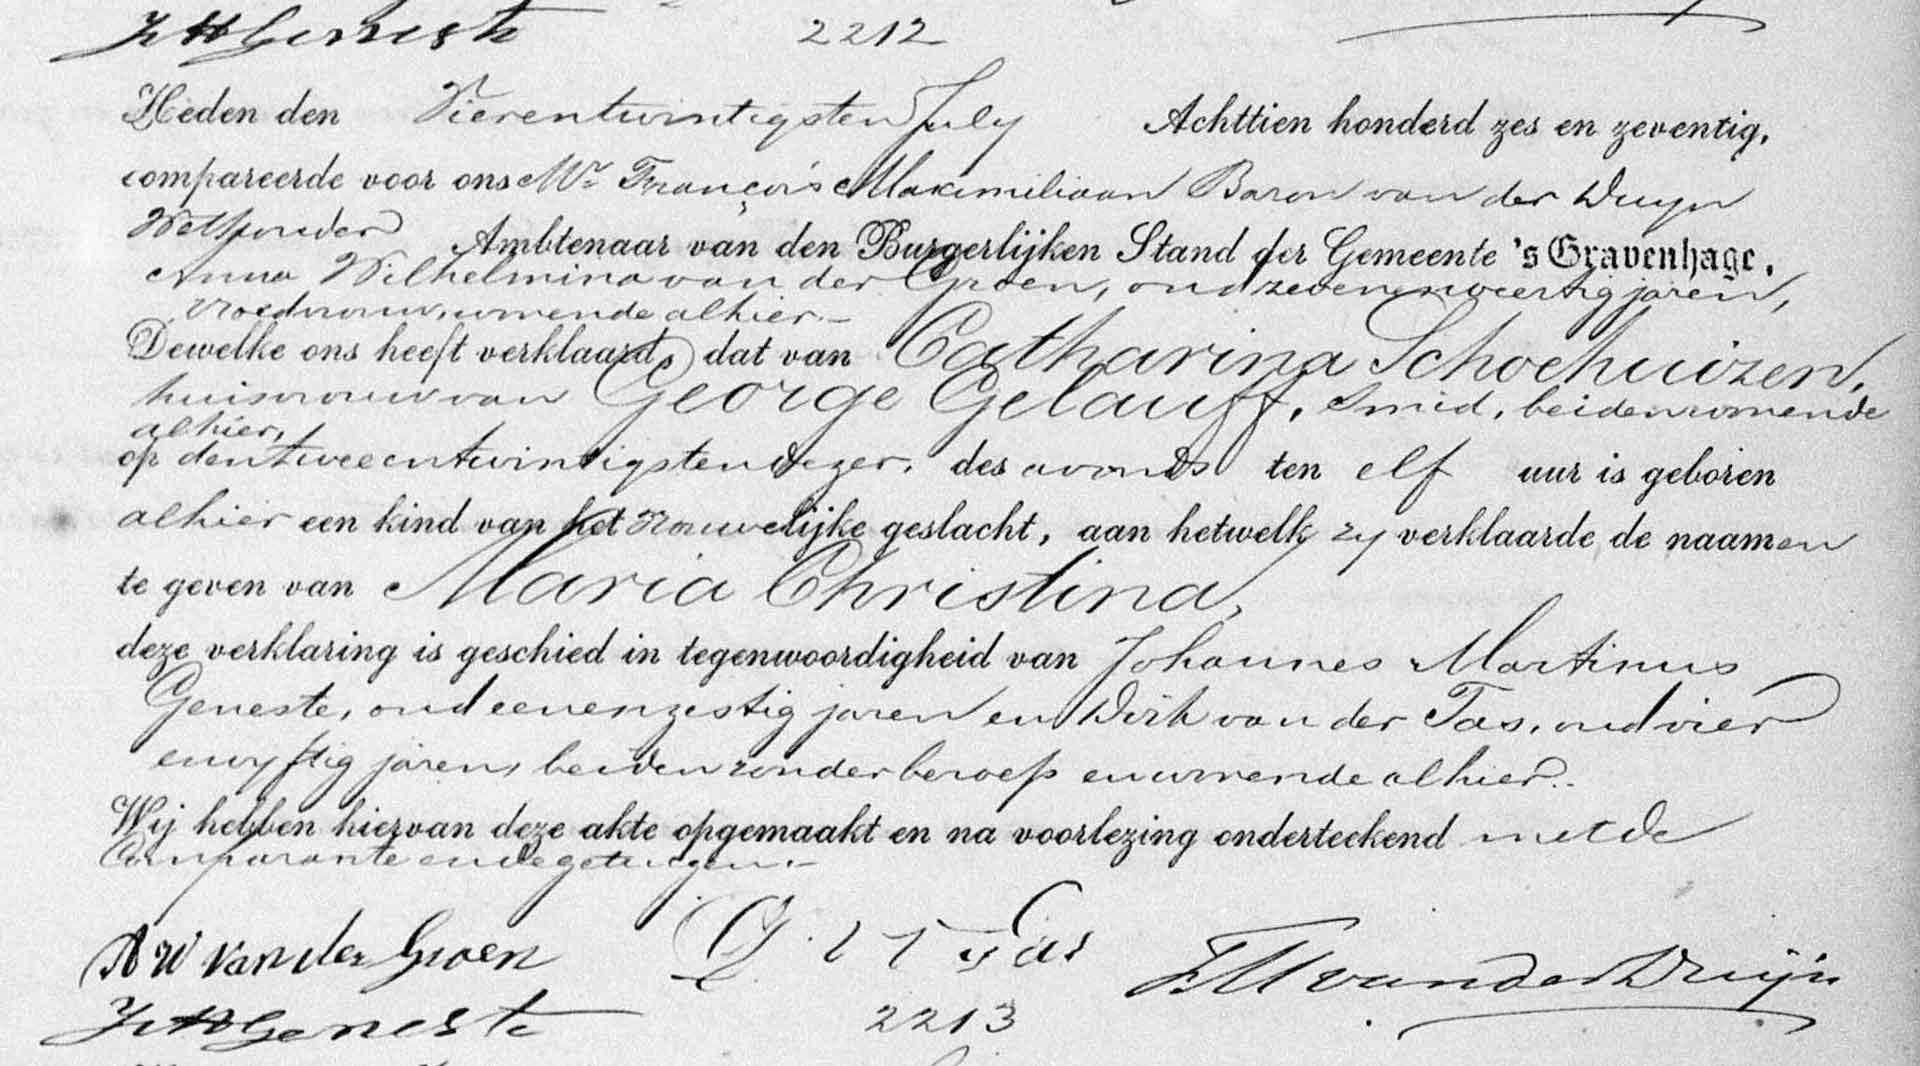 JM Geneste
2212
Heden den Vierentwintigsten July Achttien honderd zes en zeventig,
compareerde voor ons Mr. François Maximiliaan Baron van der Duyn
Wethouder Ambtenaar van den Burgerlijken Stand der Gemeente 's Gravenhage.
Anna Wilhelmina van der Groen, oud zevenenveertig jaren,
vroedvrouw, wonende alhier.-
Dewelke ons heeft verklaard, dat van Catharina Schoehuizen,
huisvrouw van George Gelauff, Smid, beiden wonende
alhier,
op den tweeentwintigsten dezer, des avonds ten elf uur is geboren
alhier een kind van het vrouwelijke geslacht, aan hetwelk zy verklaarde de naamen
te geven van Maria Christina,
deze verklaring is geschied in tegenwoordigheid van Johannes Martinus
Geneste, oud eenenzestig jaren en Dirk van der Tas, oud vier
envyftig jaren, beiden zonder beroep en wonende alhier.
Wij hebben hiervan deze akte opgemaakt en na voorlezing onderteekend met de
Comparante en de getuigen.-
AW van der Groen
FM van der Duijn
JM Geneste
2213